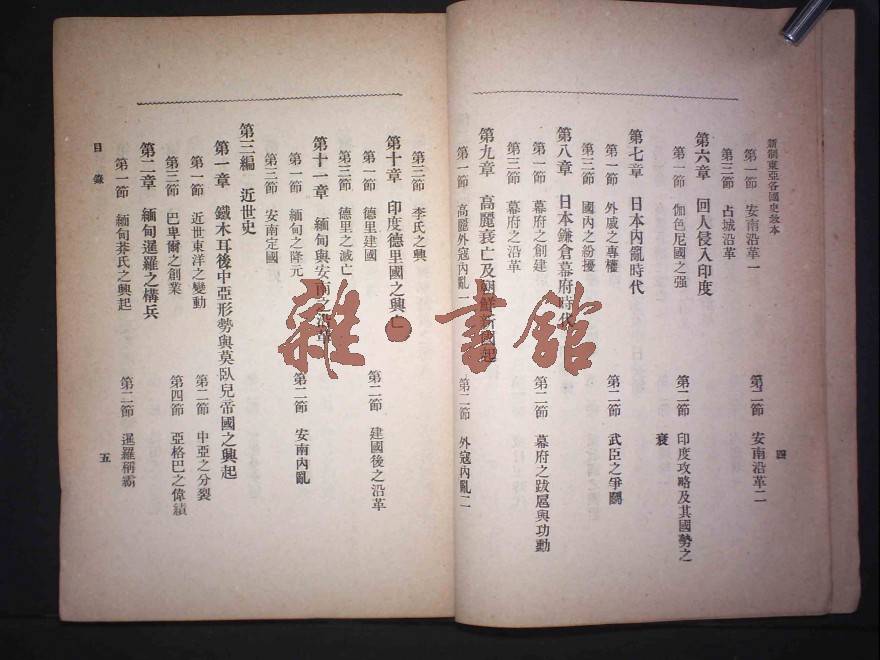 新制東亞各國史教本
四
第一節 安南沿革一
第二節 安南沿革二
第三節 占城沿革
第六章 回人侵入印度
第一節 伽色尼國之强
第二節 印度攻略及其國勢之
衰
第七章 日本內亂時代
第一節 外戚之專權
第二節 武臣之爭鬬
第三節 國內之紛擾
第八章 日本鎌倉幕府時代
第一節 幕府之創建
第二節 幕府之跋扈與功勳
第三節 幕府之沿革
第九章 高麗衰亡及朝鮮新國起
第一節 高麗外寇內亂一
第二節 外寇內亂二
第三節 李氏之興
第十章 印度德里國之興亡
第一節 德里建國
第二節 建國後之沿革
第三節 德里之滅亡
第十一章 緬甸與安南之沿革
第一節 緬甸之隆元
第二節 安南內亂
第三節 安南定國
第三編 近世史
第一章 鐵木耳後中亞形勢與莫臥兒帝國之興起
第一節 近世東洋之變動
第二節 中亞之分裂
第三節 巴卑爾之創業
第四節 亞格巴之偉績
第二章 緬甸暹羅之構兵
第一節 緬甸莽氏之興起
第二節 暹羅稱霸
目錄
五
雜·書館